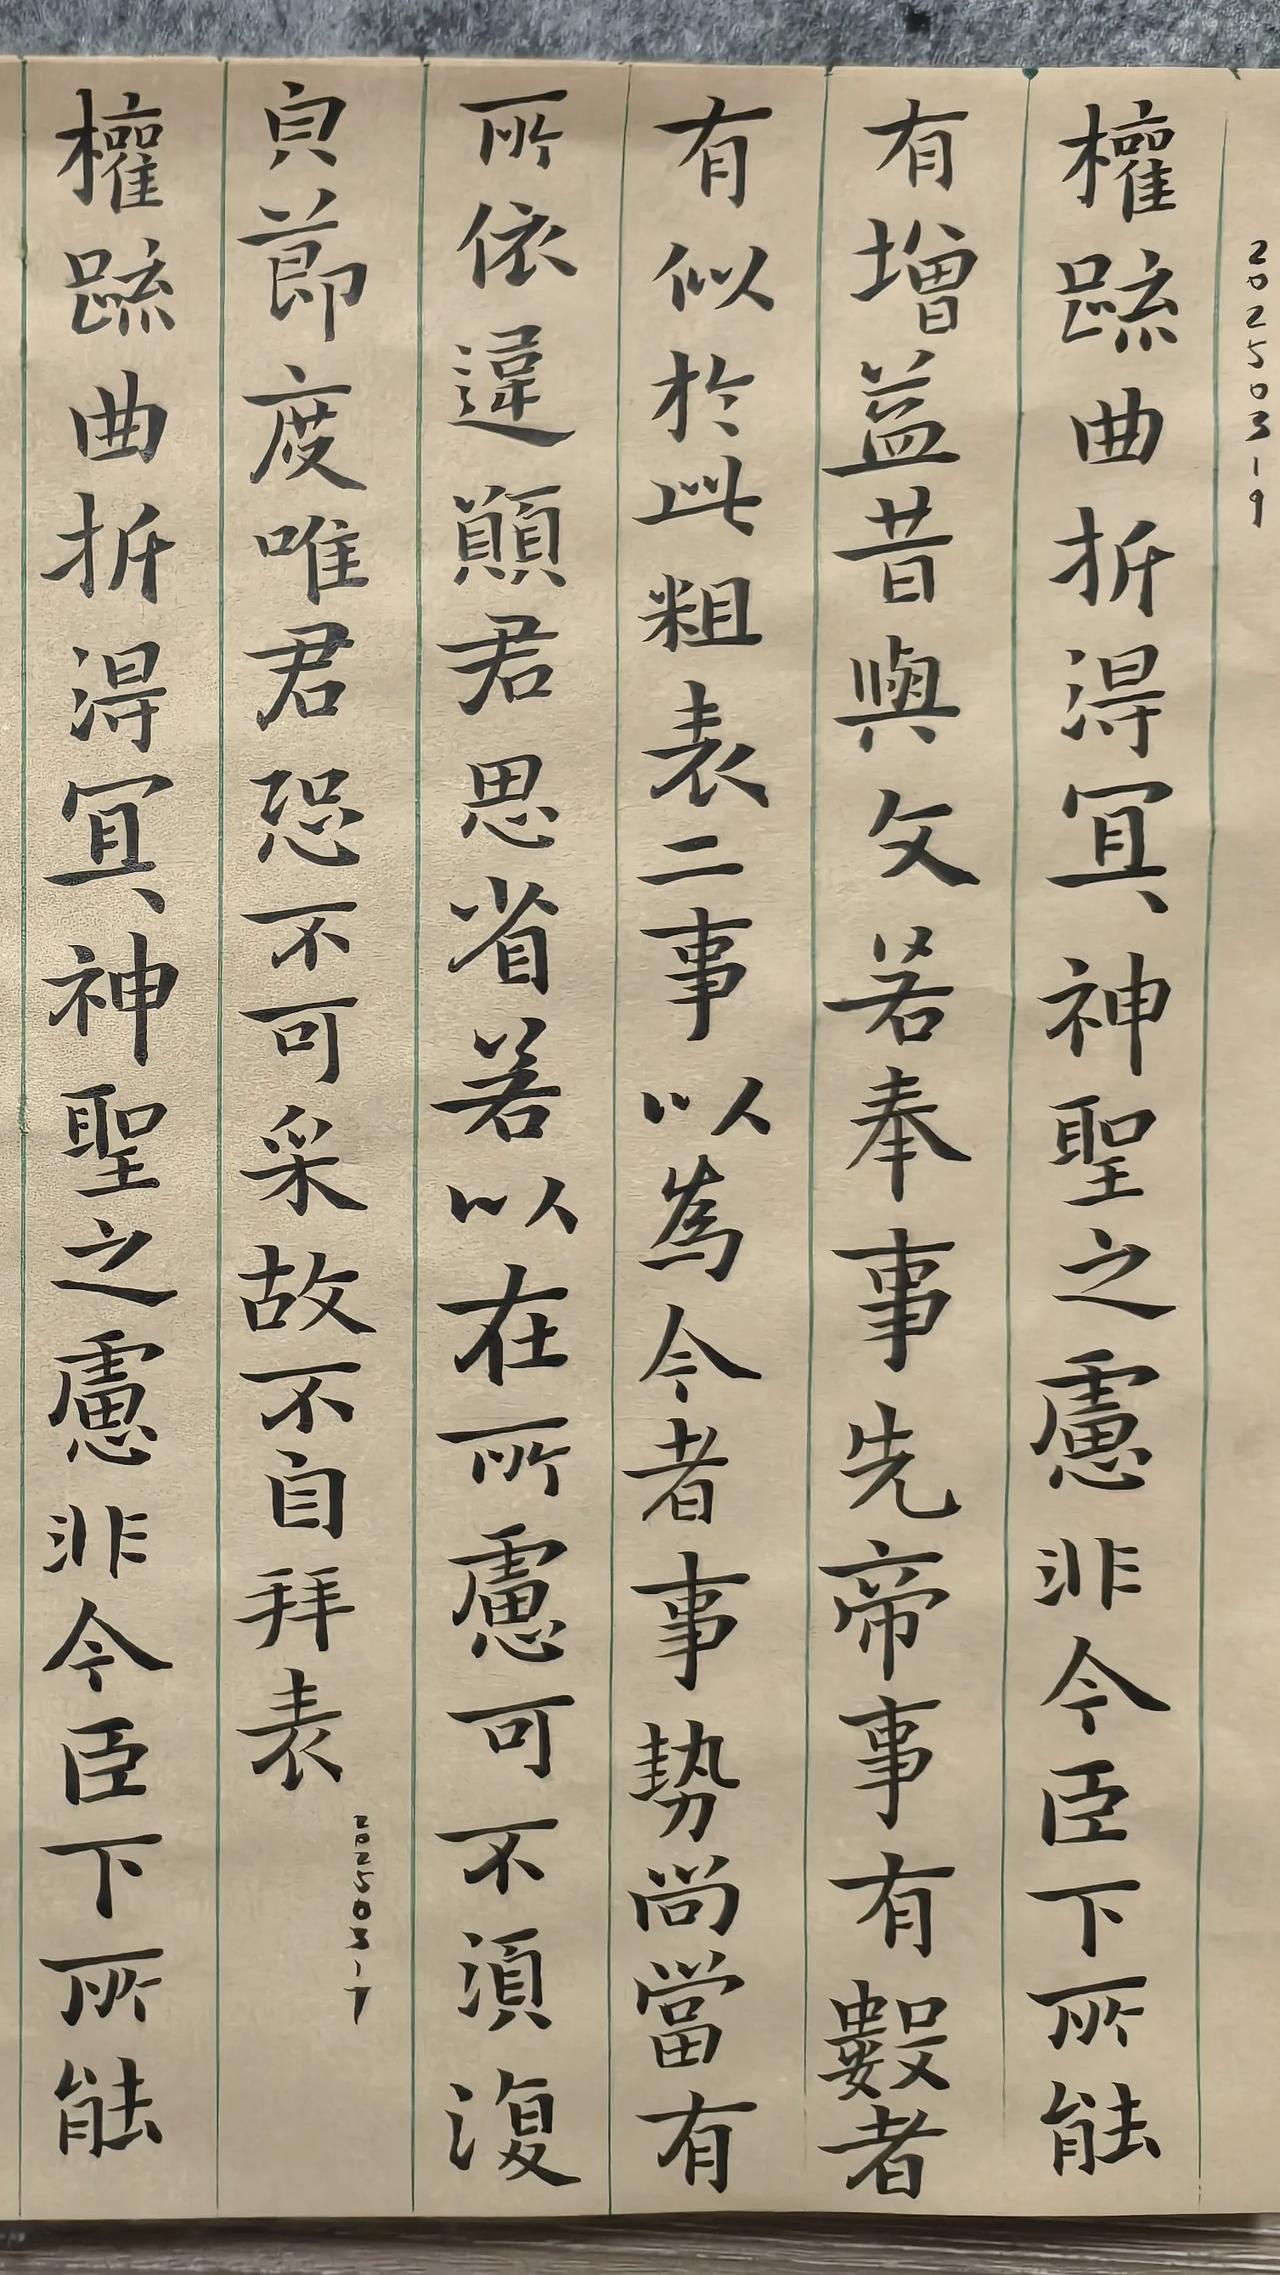 20250319
權疏曲折得冝神聖之慮非今臣下所能
有增益昔與文若奉事先帝事有數者
有似於此粗表二事以為今者事勢尚當有
所依違願君思省若以在所慮可不須復
貟節度唯君恐不可采故不自拜表
20250317
權疏曲折得冝神聖之慮非今臣下所能